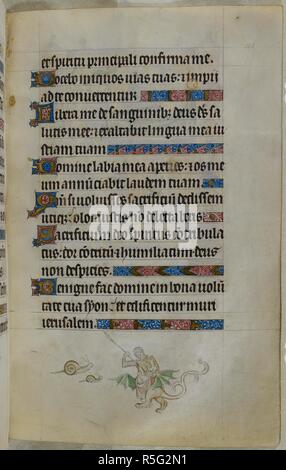 et spiritu principali confirma me.
Doceb iniquos uias tuas: ⁊ impii
ad te conuertentur
Libera me de sanguinib; deus ds sa
lutis mee: ⁊ exaltabit lingua mea iu
sticiam tuam
Domine labia mea aperies: ⁊ os me
um annūciabit laudem tuam
si uoluisses sacrificiū dedissem
utiq;
Sacrificium deo spiritus cōtribula
tus: cor cōtritū ⁊ humiliatum deus
non despicies.
Benigne fac domine in bona uolū
tate tua syon: et edificentur muri
ierusalem.
alamy
alamy stock photo
R5G2N1
www.alamy.com